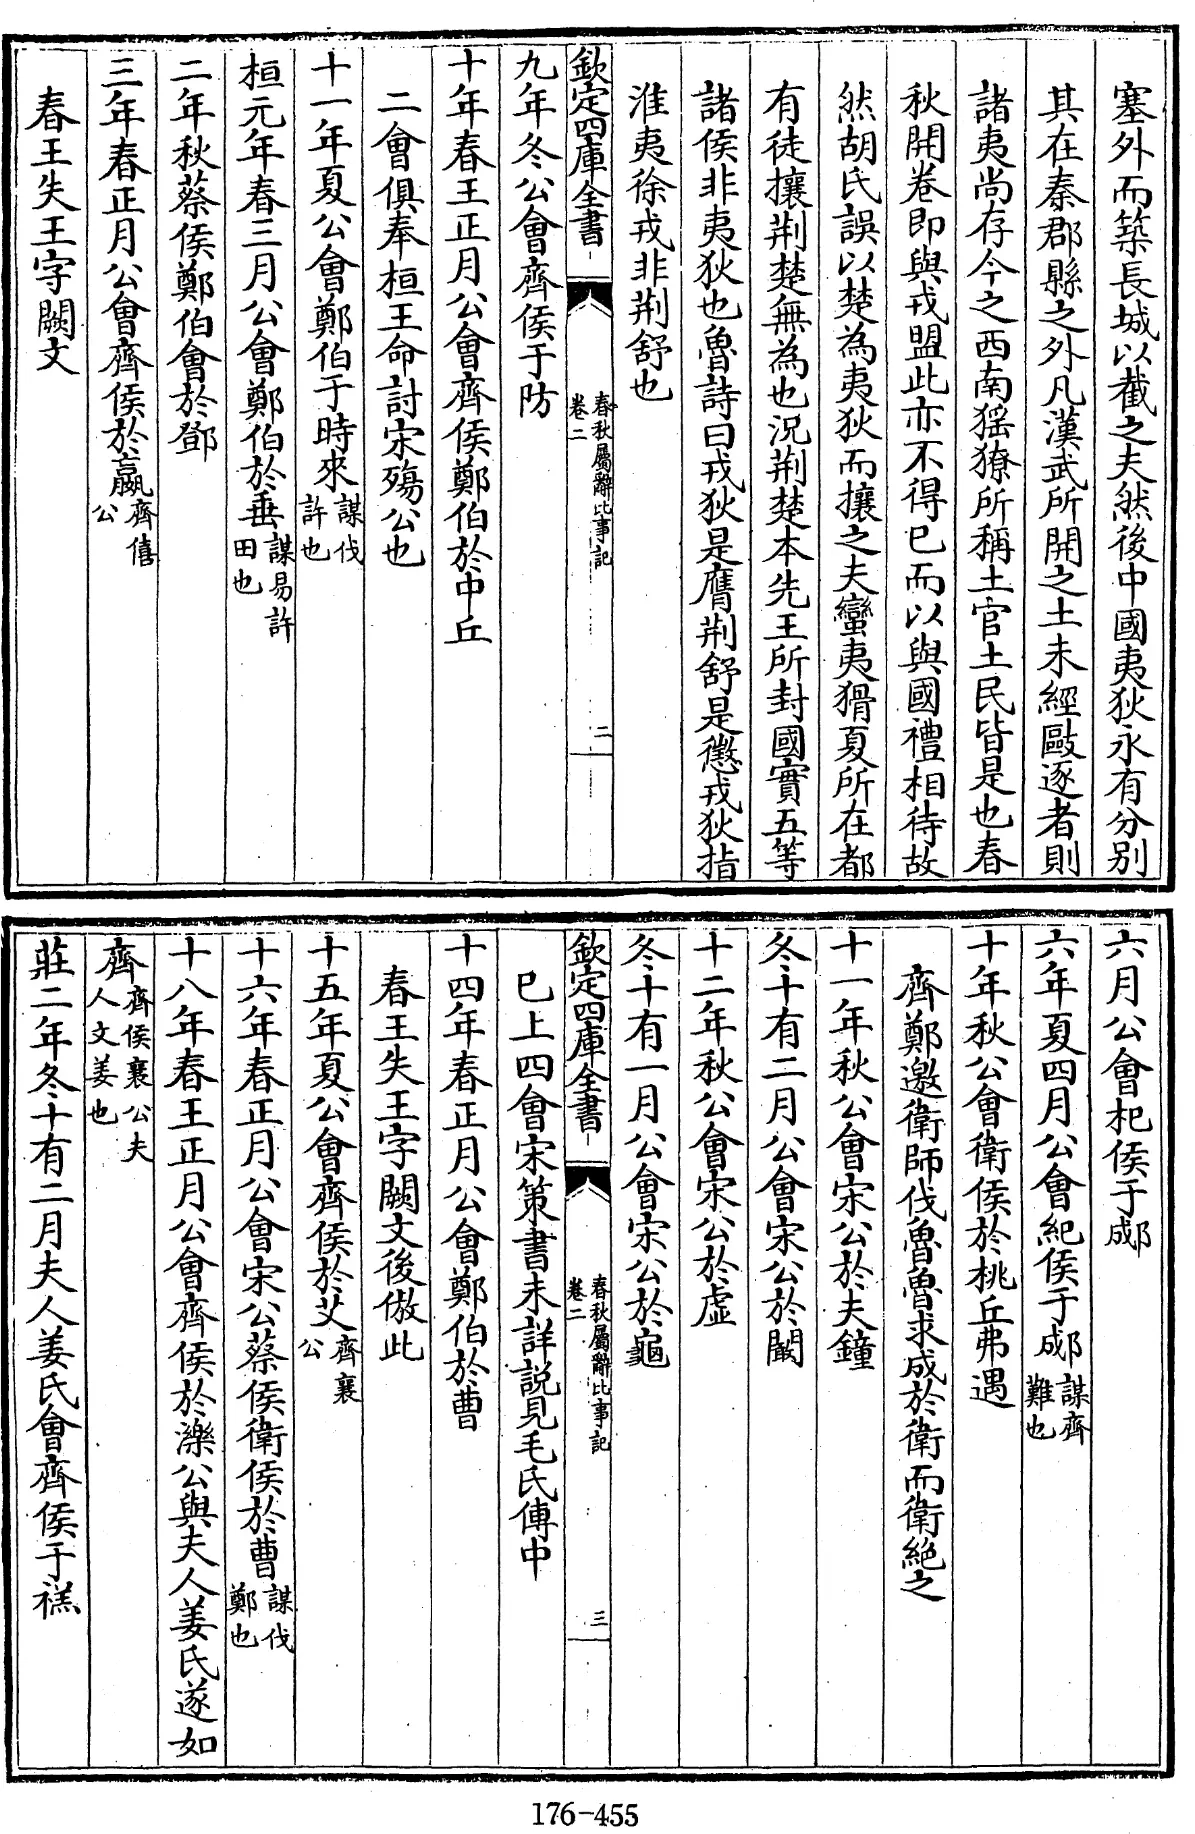 塞外而築長城以截之夫然後中國夷狄永有分別
其在秦郡縣之外凡漢武所開之土未經敺逐者則
諸夷尚存今之西南猺獠所稱土官土民皆是也春
秋開卷即與戎盟此亦不得已而以與國禮相待故
然胡氏誤以楚為夷狄而攘之夫蠻夷猾夏所在都
有徒攘荆楚無為也況荆楚本先王所封國實五等
諸侯非夷狄也魯詩曰戎狄是膺荆舒是懲戎狄指
淮夷徐戎非荆舒也
九年冬公會齊侯于防
欽定四庫全書
春秋屬辭比事記
卷二
二
十年春王正月公會齊侯鄭伯於中丘
二會俱奉桓王命討宋殤公也
十一年夏公會鄭伯于時來謀伐許也
桓元年春三月公會鄭伯於垂謀易許田也
二年秋蔡侯鄭伯會於鄧
三年春正月公會齊侯於嬴齊僖公
春王失王字闕文
六月公會杞侯于郕
六年夏四月公會紀侯于郕謀齊難也
十年秋公會衛侯於桃丘弗遇
齊鄭邀衛師伐魯魯求成於衛而衛絕之
十一年秋公會宋公於夫鐘
冬十有二月公會宋公於闞
十二年秋公會宋公於虛
冬十有一月公會宋公於龜
欽定四庫全書
春秋屬辭比事記
卷二
三
已上四會宋策書未詳說見毛氏傳中
十四年春正月公會鄭伯於曹
春王失王字闕文後倣此
十五年夏公會齊侯於艾齊襄公
十六年春正月公會宋公蔡侯衛侯於曹謀伐鄭也
十八年春王正月公會齊侯於濼公與夫人姜氏遂如
齊齊侯襄公夫人文姜也
莊二年冬十有二月夫人姜氏會齊侯于禚
176-455